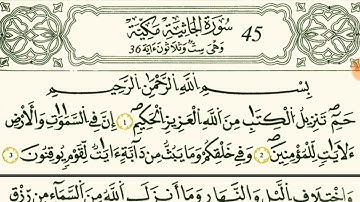 45 سُورَةُ الْجَاثِيَةِ مَكِّيَّةٌ
وَهِىَ سِتٌّ وَثَلَاثُونَ ءَايَة 36
بِسْمِ اللَّهِ الرَّحْمَٰنِ الرَّحِيمِ
حمٓ تَنزِيلُ الْكِتَابِ مِنَ اللَّهِ الْعَزِيزِ الْحَكِيمِ 1 إِنَّ فِى السَّمَٰوَٰتِ وَالْأَرْضِ
لَءَايَٰتٍ لِّلْمُؤْمِنِينَ 2 وَفِى خَلْقِكُمْ وَمَا يَبُثُّ مِن دَآبَّةٍ ءَايَٰتٌ لِّقَوْمٍ يُوقِنُونَ 3
وَاخْتِلَٰفِ الَّيْلِ وَالنَّهَارِ وَمَآ أَنزَلَ اللَّهُ مِنَ السَّمَآءِ مِن رِّزْقٍ